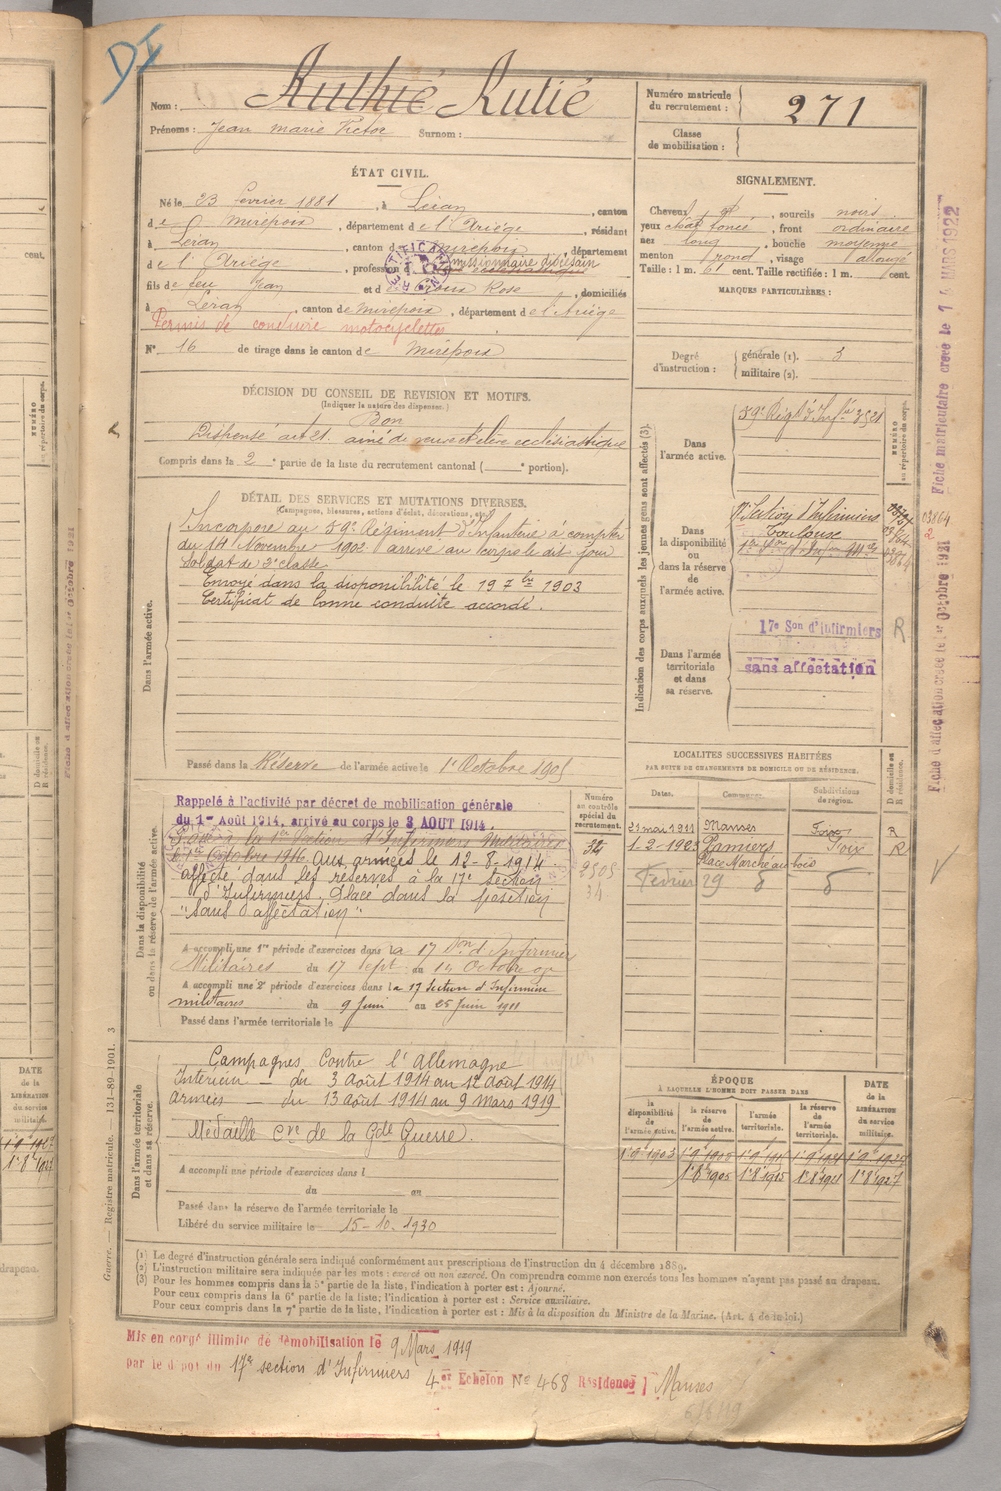 DI
Nom : Authié Autié
Prénoms : Jean marie Victor Surnom :
Numéro matricule du recrutement : 271
Classe de mobilisation :
ÉTAT CIVIL.
Né le 23 février 1881, à Léran, canton
de Mirepoix, département de l'Ariège, résidant
à Léran, canton de Mirepoix, département
de l'Ariège, profession d missionnaire diocésain
RECTIFICATION
fils de feu Jean et de Rose, domiciliés
à Léran, canton de Mirepoix, département de l'Ariège
Permis de conduire motocyclettes
N° 16 de tirage dans le canton de Mirepoix
SIGNALEMENT.
Cheveux, sourcils noirs
yeux chat foncé, front ordinaire
nez long, bouche moyenne
menton rond, visage allongé
Taille : 1 m. 61 cent. Taille rectifiée : 1 m. cent.
MARQUES PARTICULIÈRES :
Degré d'instruction : générale (1). 3
militaire (2).
DÉCISION DU CONSEIL DE REVISION ET MOTIFS.
(Indiquer la nature des dispenses.)
Bon
Dispensé art 21. ainé de veuve et elève ecclésiastique
Compris dans la 2e partie de la liste du recrutement cantonal ( e portion).
DÉTAIL DES SERVICES ET MUTATIONS DIVERSES.
(Campagnes, blessures, actions d'éclat, décorations, etc.)
Dans l'armée active.
Incorporé au 59e Régiment d'Infanterie à compter
du 14 Novembre 1902 arrivé au corps le dit jour
Soldat de 2e classe
Envoyé dans la disponibilité le 19 7bre 1903
Certificat de bonne conduite accordé.
Passé dans la Réserve de l'armée active le 1er Octobre 1905
Indication des corps auxquels les jeunes gens sont affectés (3).
NUMÉRO au répertoire du corps.
Dans l'armée active.
59e Régt d'Infie 3521
Dans la disponibilité ou dans la réserve de l'armée active.
17e Section d'Infirmiers
Toulouse
03864
2
Dans l'armée territoriale et dans sa réserve.
17e Son d'Infirmiers R
sans affectation
Fiche matriculaire créée le 14 MARS 1922
Fiche d'affectation créée le 1er Octobre 1921
LOCALITÉS SUCCESSIVES HABITÉES
PAR SUITE DE CHANGEMENTS DE DOMICILE OU DE RÉSIDENCE.
Dates. Communes. Subdivisions de région. D domicile ou R résidence.
21 mai 1911 Manses Foix R
1-2-1923 Pamiers Foix R
Place Marché au bois
Février 29
Dans la disponibilité ou dans la réserve de l'armée active.
Numéro au contrôle spécial du recrutement.
32
2505
34
Rappelé à l'activité par décret de mobilisation générale
du 1er Août 1914, arrivé au corps le 3 AOUT 1914.
Passé à la 1ère Section d'Infirmiers Militaires
le 1er Octobre 1916 aux armées le 12-8-1914
affecté dans les réserves à la 17e section
d'Infirmiers. Placé dans la position
"Sans affectation"
A accompli une 1re période d'exercices dans la 17 Son d'Infirmiers
Militaires du 17 Sept. au 14 Octobre 07
A accompli une 2e période d'exercices dans la 17 Section d'Infirmiers
militaires du 9 Juin au 25 Juin 1911
Passé dans l'armée territoriale le
Dans l'armée territoriale et dans sa réserve.
Campagnes Contre l'Allemagne
Intérieur — du 3 Août 1914 au 12 Août 1914
Armées — du 13 Août 1914 au 9 Mars 1919
Médaille Cve de la Gde Guerre.
A accompli une période d'exercices dans l
du au
Passé dans la réserve de l'armée territoriale le
Libéré du service militaire le 15-10-1930
ÉPOQUE
À LAQUELLE L'HOMME DOIT PASSER DANS
la disponibilité de l'armée active. la réserve de l'armée active. l'armée territoriale. la réserve de l'armée territoriale. DATE de la LIBÉRATION du service militaire.
1-9-1903 1-9-1905 1-9-1921 1-9-1927
1-8-1905 1-8-1915 1-8-1921 1-8-1927
(1) Le degré d'instruction générale sera indiqué conformément aux prescriptions de l'instruction du 4 décembre 1889.
(2) L'instruction militaire sera indiquée par les mots : exercé ou non exercé. On comprendra comme non exercés tous les hommes n'ayant pas passé au drapeau.
(3) Pour les hommes compris dans la 5e partie de la liste, l'indication à porter est : Ajourné.
Pour ceux compris dans la 6e partie de la liste, l'indication à porter est : Service auxiliaire.
Pour ceux compris dans la 7e partie de la liste, l'indication à porter est : Mis à la disposition du Ministre de la Marine. (Art. 4 de la loi.)
Guerre. — Registre matricule. — 131-89-1901. 3
Mis en congé illimité de démobilisation le 9 Mars 1919
par le dépôt du 17e section d'Infirmiers 4e Echelon N° 468 Résidence Manses
6/6/19
cent.
NUMÉRO au répertoire du corps.
Fiche d'affectation créée le 1er Octobre 1921
D domicile ou R résidence.
DATE de la LIBÉRATION du service militaire.
1-9-1927
1-8-1927
drapeau.